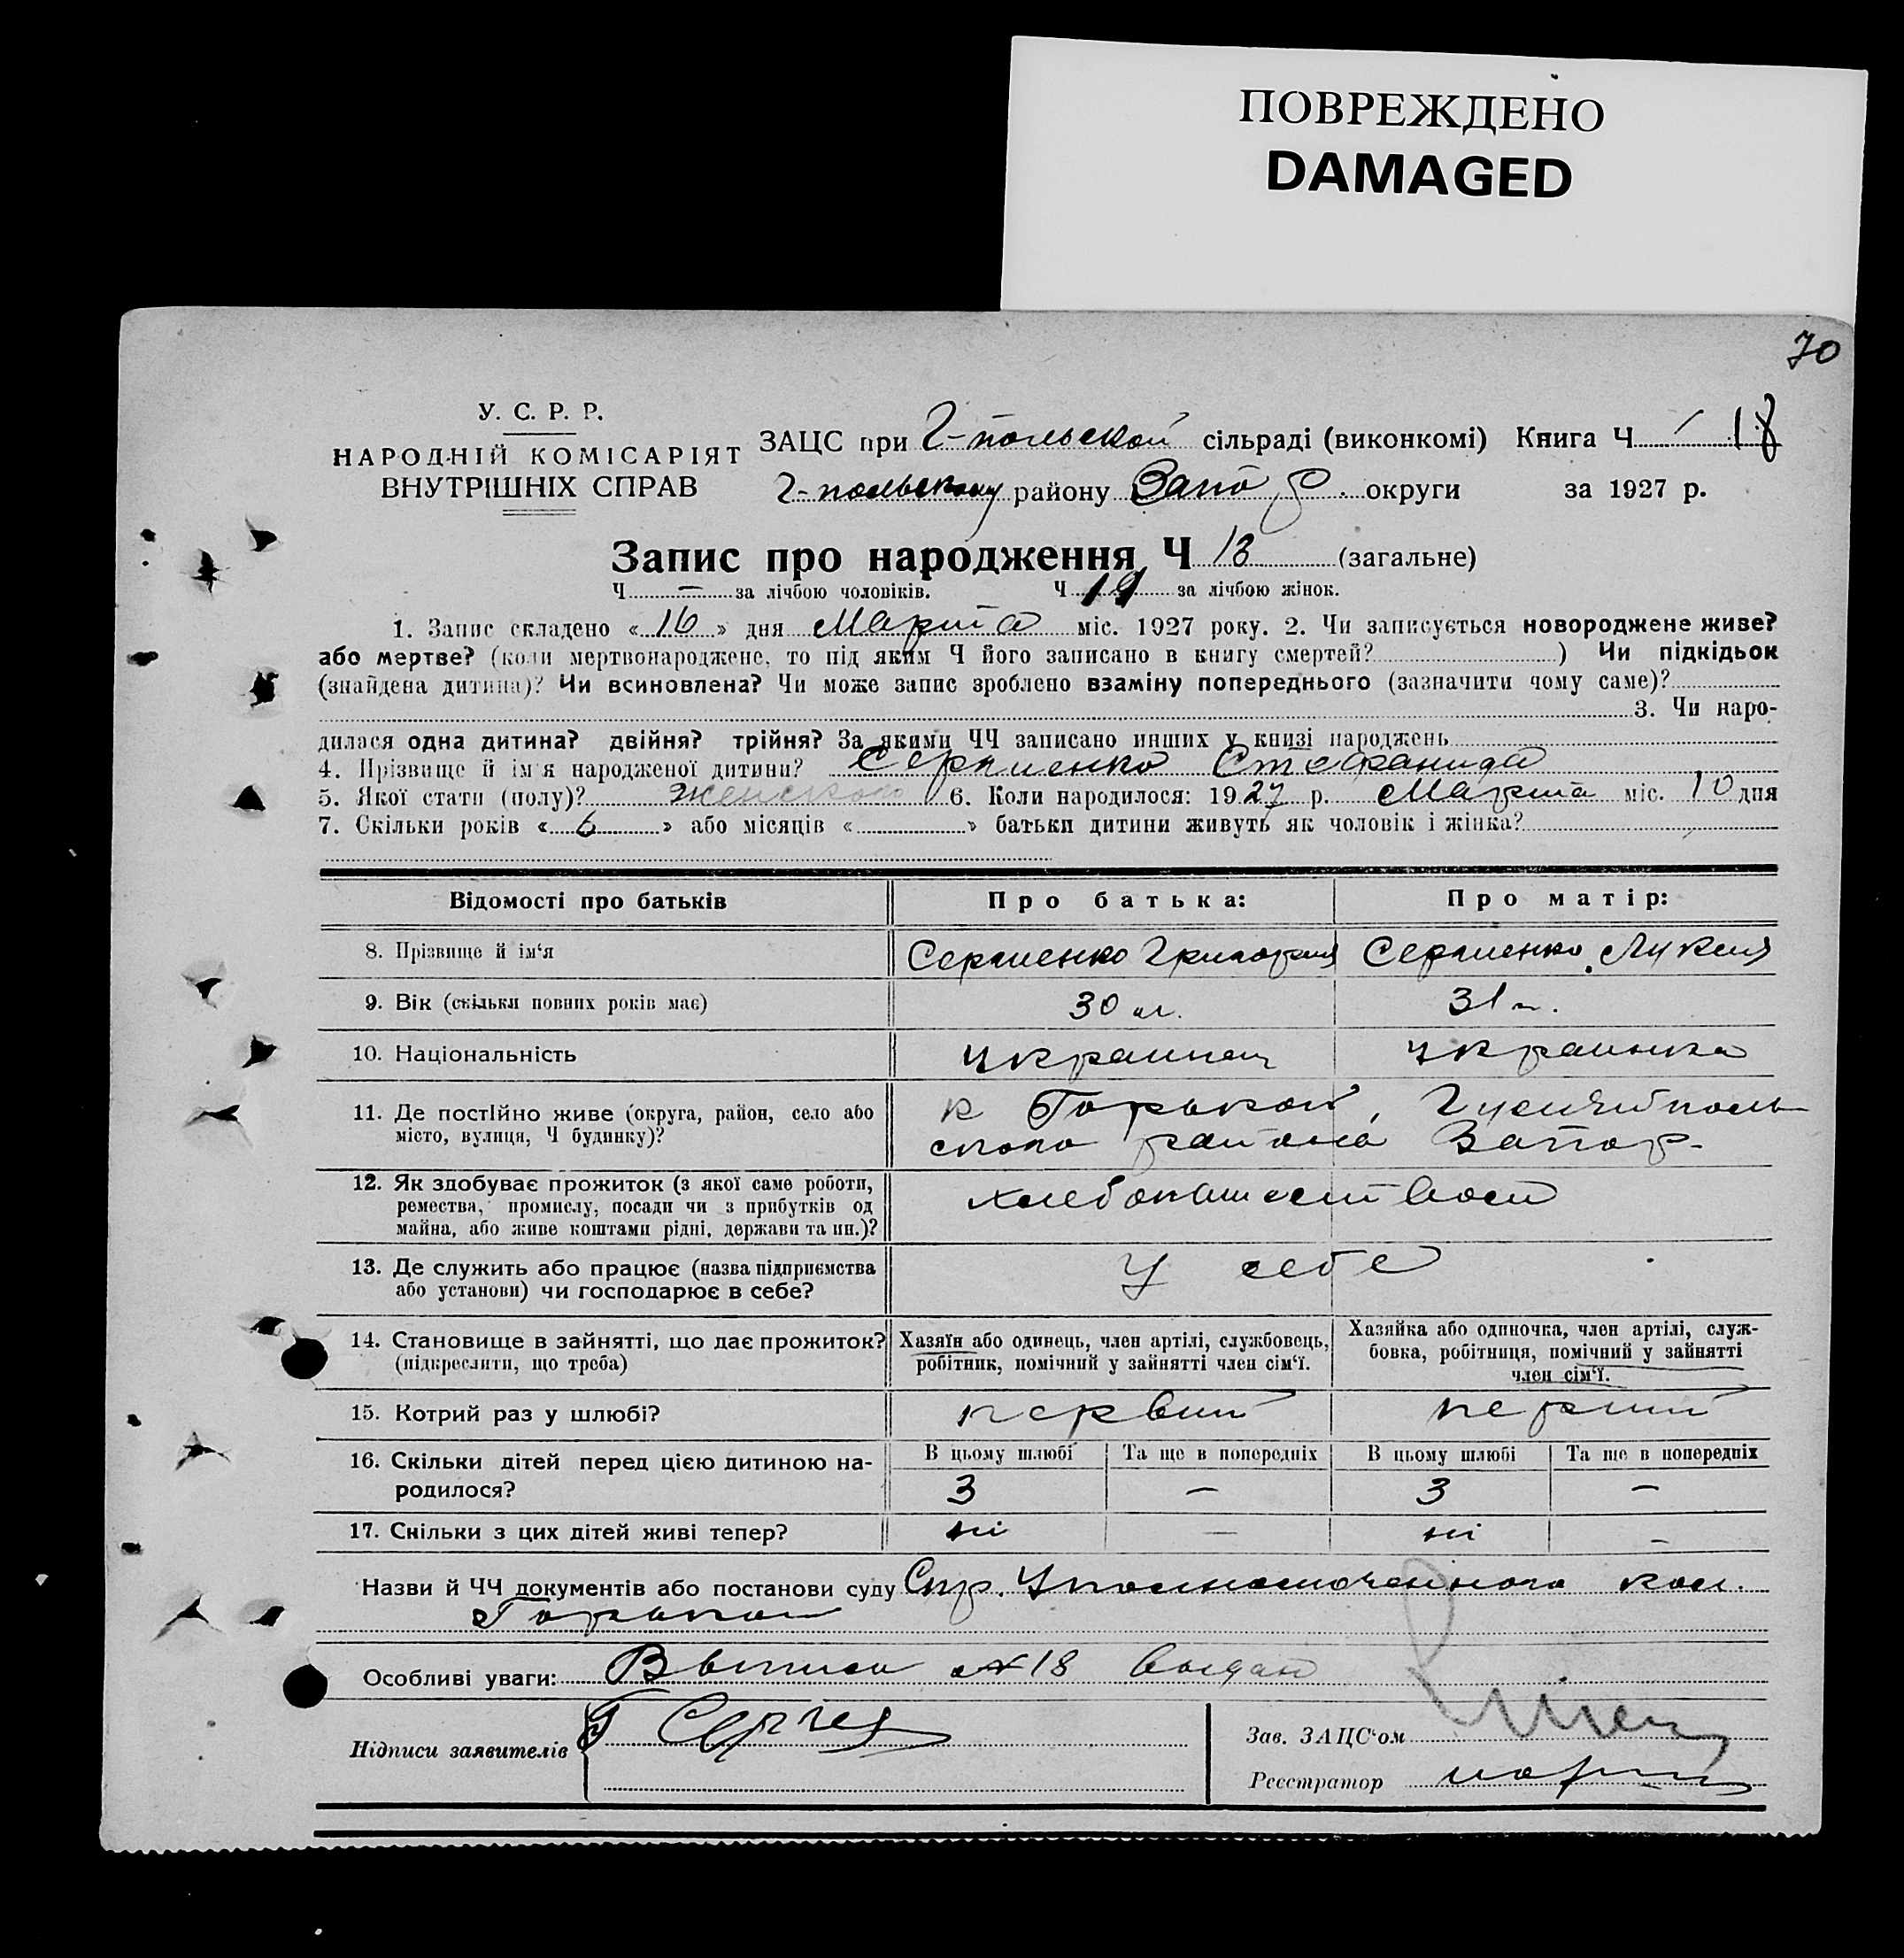 ПОВРЕЖДЕНО
DAMAGED
70
У. С. Р. Р.
НАРОДНІЙ КОМІСАРІЯТ
ВНУТРІШНІХ СПРАВ
ЗАЦС при Г-польской сільраді (виконкомі) Книга Ч 18
Г-польскому району Запор. округи за 1927 р.
Запис про народження Ч 13 (загальне)
Ч — за лічбою чоловіків. Ч 19 за лічбою жінок.
1. Запис складено « 16 » дня Марта міс. 1927 року. 2. Чи записується новороджене живе?
або мертве? (коли мертвонароджене, то під яким Ч його записано в книгу смертей? ) Чи підкідьок
(знайдена дитина)? Чи всиновлена? Чи може запис зроблено взаміну попереднього (зазначити чому саме)?
3. Чи наро-
дилася одна дитина? двійня? трійня? За якими ЧЧ записано инших у книзі народжень
4. Прізвище й ім'я народженої дитини? Сергиенко Стефанида
5. Якої стати (полу)? женского 6. Коли народилося: 1927 р. Марта міс. 10 дня
7. Скільки років « 6 » або місяців « » батьки дитини живуть як чоловік і жінка?
Відомості про батьків Про батька: Про матір:
8. Прізвище й ім'я Сергиенко Григория Сергиенко Лукия
9. Вік (скільки повних років має) 30 л. 31 л.
10. Національність украинец украинка
11. Де постійно живе (округа, район, село або к Горькой, Гуляйполь
місто, вулиця, Ч будинку)? ского района Запор-
12. Як здобуває прожиток (з якої саме роботи, хлебопашеством
ремества, промислу, посади чи з прибутків од
майна, або живе коштами рідні, держави та ин.)?
13. Де служить або працює (назва підприємства У себе
або установи) чи господарює в себе?
14. Становище в зайнятті, що дає прожиток? Хазяїн або одинець, член артілі, службовець, Хазяйка або одиночка, член артілі, служ-
(підкреслити, що треба) робітник, помічний у зайнятті член сім'ї. бовка, робітниця, помічний у зайнятті
член сім'ї.
15. Котрий раз у шлюбі? первий перший
16. Скільки дітей перед цією дитиною на- В цьому шлюбі Та ще в попередніх В цьому шлюбі Та ще в попередніх
родилося? 3 — 3 —
17. Скільки з цих дітей живі тепер? ні — ні —
Назви й ЧЧ документів або постанови суду Спр. Уполномоченного кол.
Горькой
Особливі уваги: Выписи № 18 выдан
Підписи заявителів Г Сергие
Зав. ЗАЦС'ом
Реєстратор